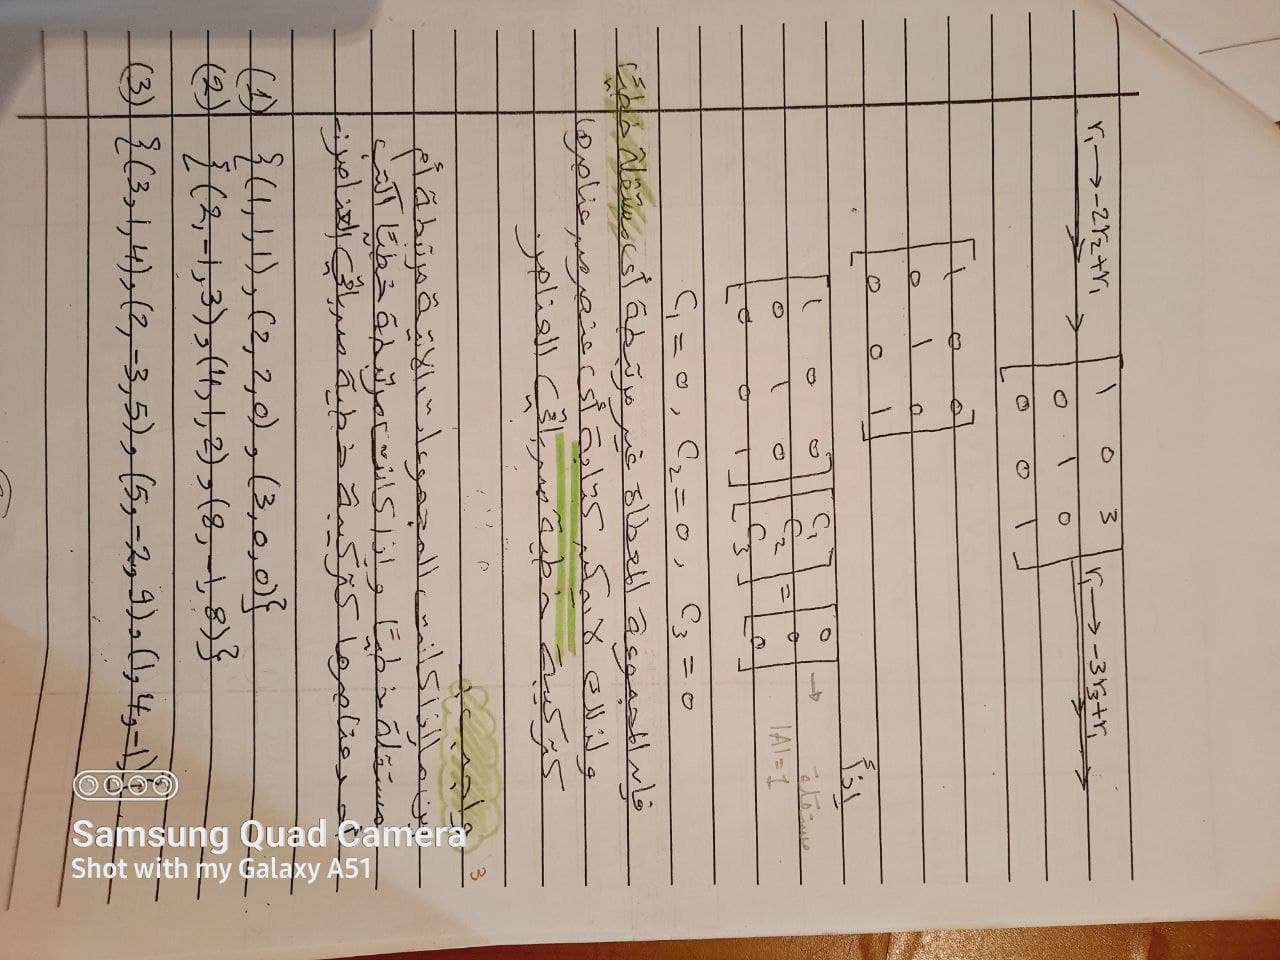 r₁→-2r₂+r₁
1 0 3
0 1 0
0 0 1
r₁→-3r₃+r₁
1 0 0
0 1 0
0 0 1
إذاً
1 0 0
0 1 0
0 0 1
C₁
C₂
C₃
=
0
0
0
→ مستقلة
|A|=1
C₁=0, C₂=0, C₃=0
فإن المجموعة المعطاة غير مرتبطة أي مستقلة خطيًا
ولذلك لا يمكن كتابة أي عنصر من عناصرها
كتركيبة خطية من باقي العناصر.
واجب :- 3
بين ما إذا كانت المجموعات الآتية مرتبطة أم
مستقلة خطيًا وإذا كانت مرتبطة خطيًا اكتب
أحد عناصرها كتركيبة خطية من باقي العناصر:-
(1) {(1,1,1), (2,2,0), (3,0,0)}
(2) {(2,-1,3), (4,1,2), (8,-1,8)}
(3) {(3,1,4), (2,-3,5), (5,-2,9), (1,4,-1)}
Samsung Quad Camera
Shot with my Galaxy A51